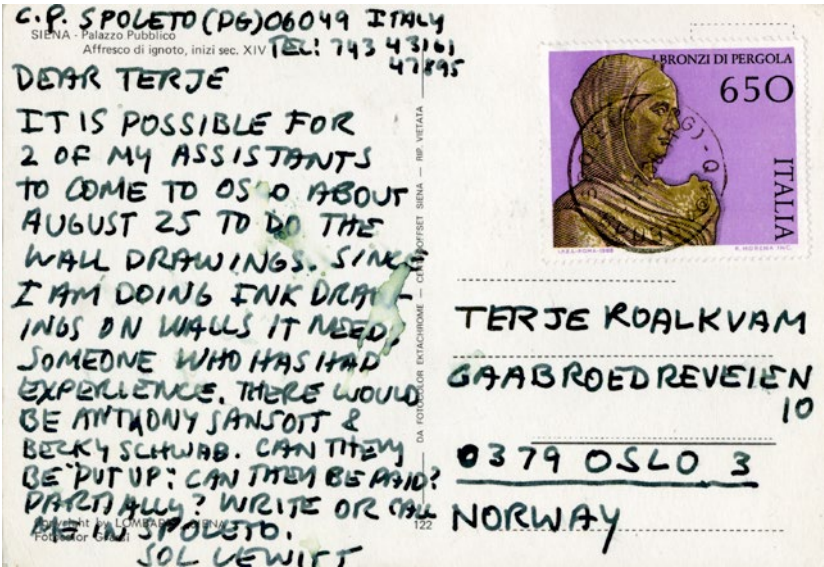 C.P. SPOLETO (PG) 06049 ITALY
SIENA - Palazzo Pubblico
Affresco di ignoto, inizi sec. XIV
TEL: 743 43161
47895
DEAR TERJE
IT IS POSSIBLE FOR
2 OF MY ASSISTANTS
TO COME TO OSLO ABOUT
AUGUST 25 TO DO THE
WALL DRAWINGS. SINCE
I AM DOING INK DRAW-
INGS ON WALLS IT NEED,
SOMEONE WHO HAS HAD
EXPERIENCE. THERE WOULD
BE ANTHONY SANSOTT &
BECKY SCHWAB. CAN THEY
BE "PUT UP": CAN THEY BE PAID?
PARTIALLY? WRITE OR CALL
ME IN SPOLETO.
SOL LEWITT
Copyright by LOMBARDI SIENA
Fotocolor Grassi
122
DA FOTOCOLOR EKTACHROME — OFFSET SIENA — RIP. VIETATA
I BRONZI DI PERGOLA
650
ITALIA
I.P.Z.S.-ROMA-1988
R. MORENA INC.
TERJE ROALKVAM
GAABROEDREVEIEN
10
0379 OSLO 3
NORWAY